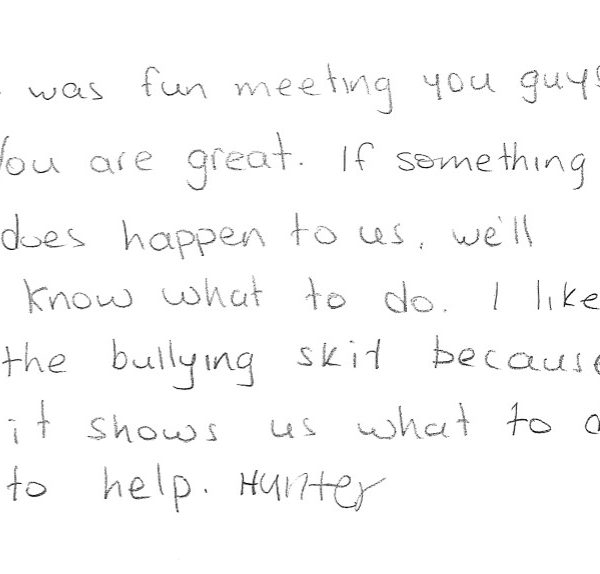 was fun meeting you guys
You are great. If something
does happen to us, we'll
know what to do. I like
the bullying skit because
it shows us what to
to help. Hunter